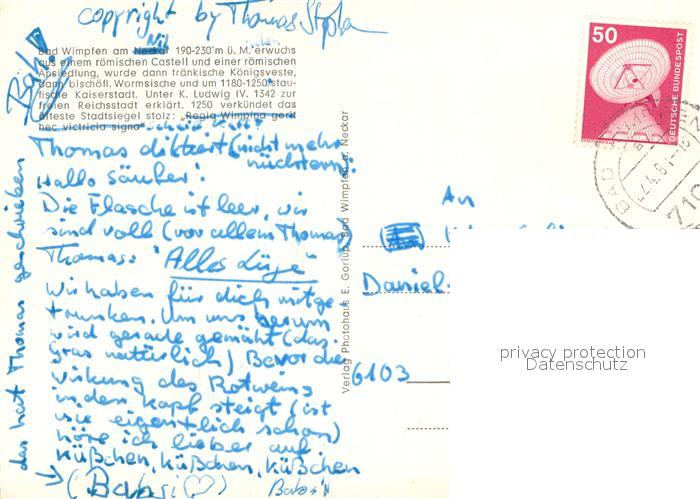 copyright by Thomas
Nil
Bad Wimpfen am Neckar 190-230 m ü. M. erwuchs
aus einem römischen Castell und einer römischen
Ansiedlung, wurde dann fränkische Königsveste,
dann bischöfl. Wormsische und um 1180-1250 stau-
fische Kaiserstadt. Unter K. Ludwig IV. 1342 zur
freien Reichsstadt erklärt. 1250 verkündet das
älteste Stadtsiegel stolz: „Regia Wimpina gerit
hec victricia signa"
Thomas diktiert (nicht mehr
nüchtern):
Hallo
Die Flasche ist leer, wir
sind voll (vor allem Thomas)
Thomas: "Alles Lüge"
Wir haben für dich mitge-
trunken. Um uns herum
wird gerade gemäht (das
Gras natürlich) Bevor die
Wirkung des Rotweins
in den Kopf steigt (ist
sie eigentlich schon)
höre ich lieber auf
Küßchen, Küßchen, Küßchen
(Babsi ♡)
Babsi
das hat Thomas geschrieben
Verlag Photohaus E. Gorlup, Bad Wimpfen a. Neckar
50
DEUTSCHE BUNDESPOST
BAD
710
An
Daniel
6103
privacy protection
Datenschutz